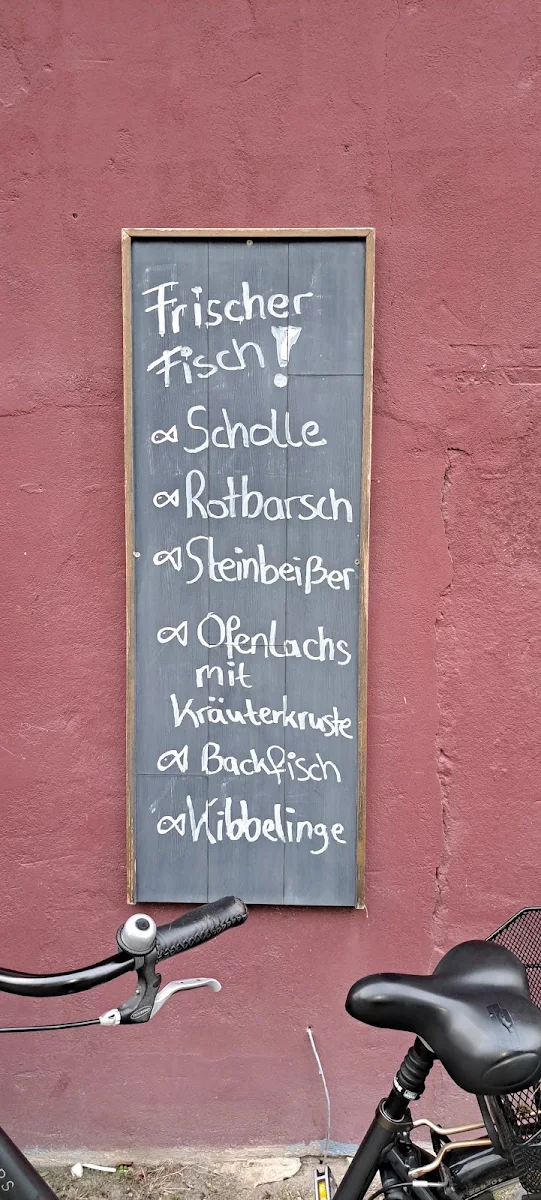 Frischer
Fisch!
Scholle
Rotbarsch
Steinbeißer
Ofenlachs
mit
Kräuterkruste
Backfisch
Kibbelinge